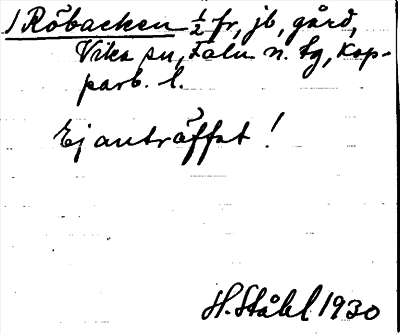 1 Röbacken ½ fr, jb, gård,
Vika sn, Falu n. tg, Kop-
parb. l.
Ej anträffat!
H. Ståhl 1930